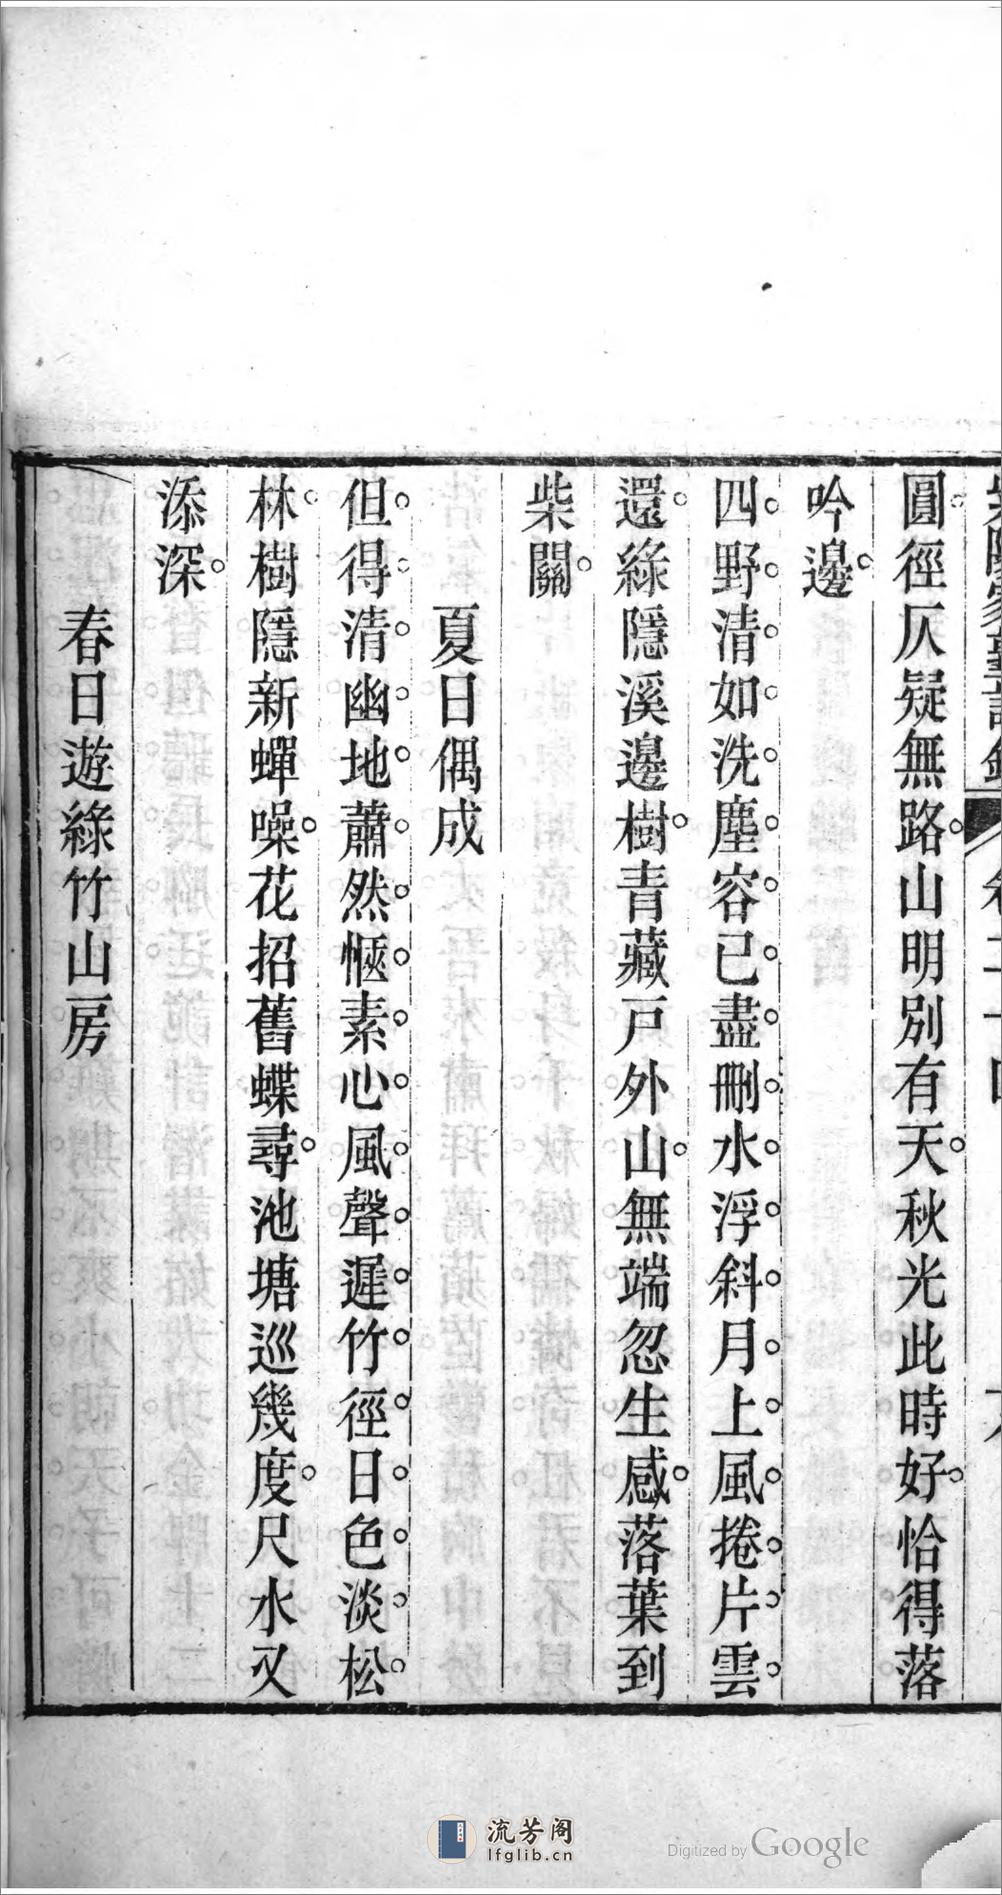 圓徑仄疑無路。山明別有天。秋光此時好。恰得落
吟邊。
四野清如洗。塵容已盡刪。水浮斜月上。風捲片雲
還。綠隱溪邊樹。青藏戸外山。無端忽生感。落葉到
柴關。
夏日偶成
但得清幽地。蕭然愜素心。風聲遲竹徑。日色淡松
林。樹隱新蟬噪。花招舊蝶尋。池塘巡幾度。尺水又
添深。
春日遊綠竹山房
流芳阁
lfglib.cn
Digitized by Google